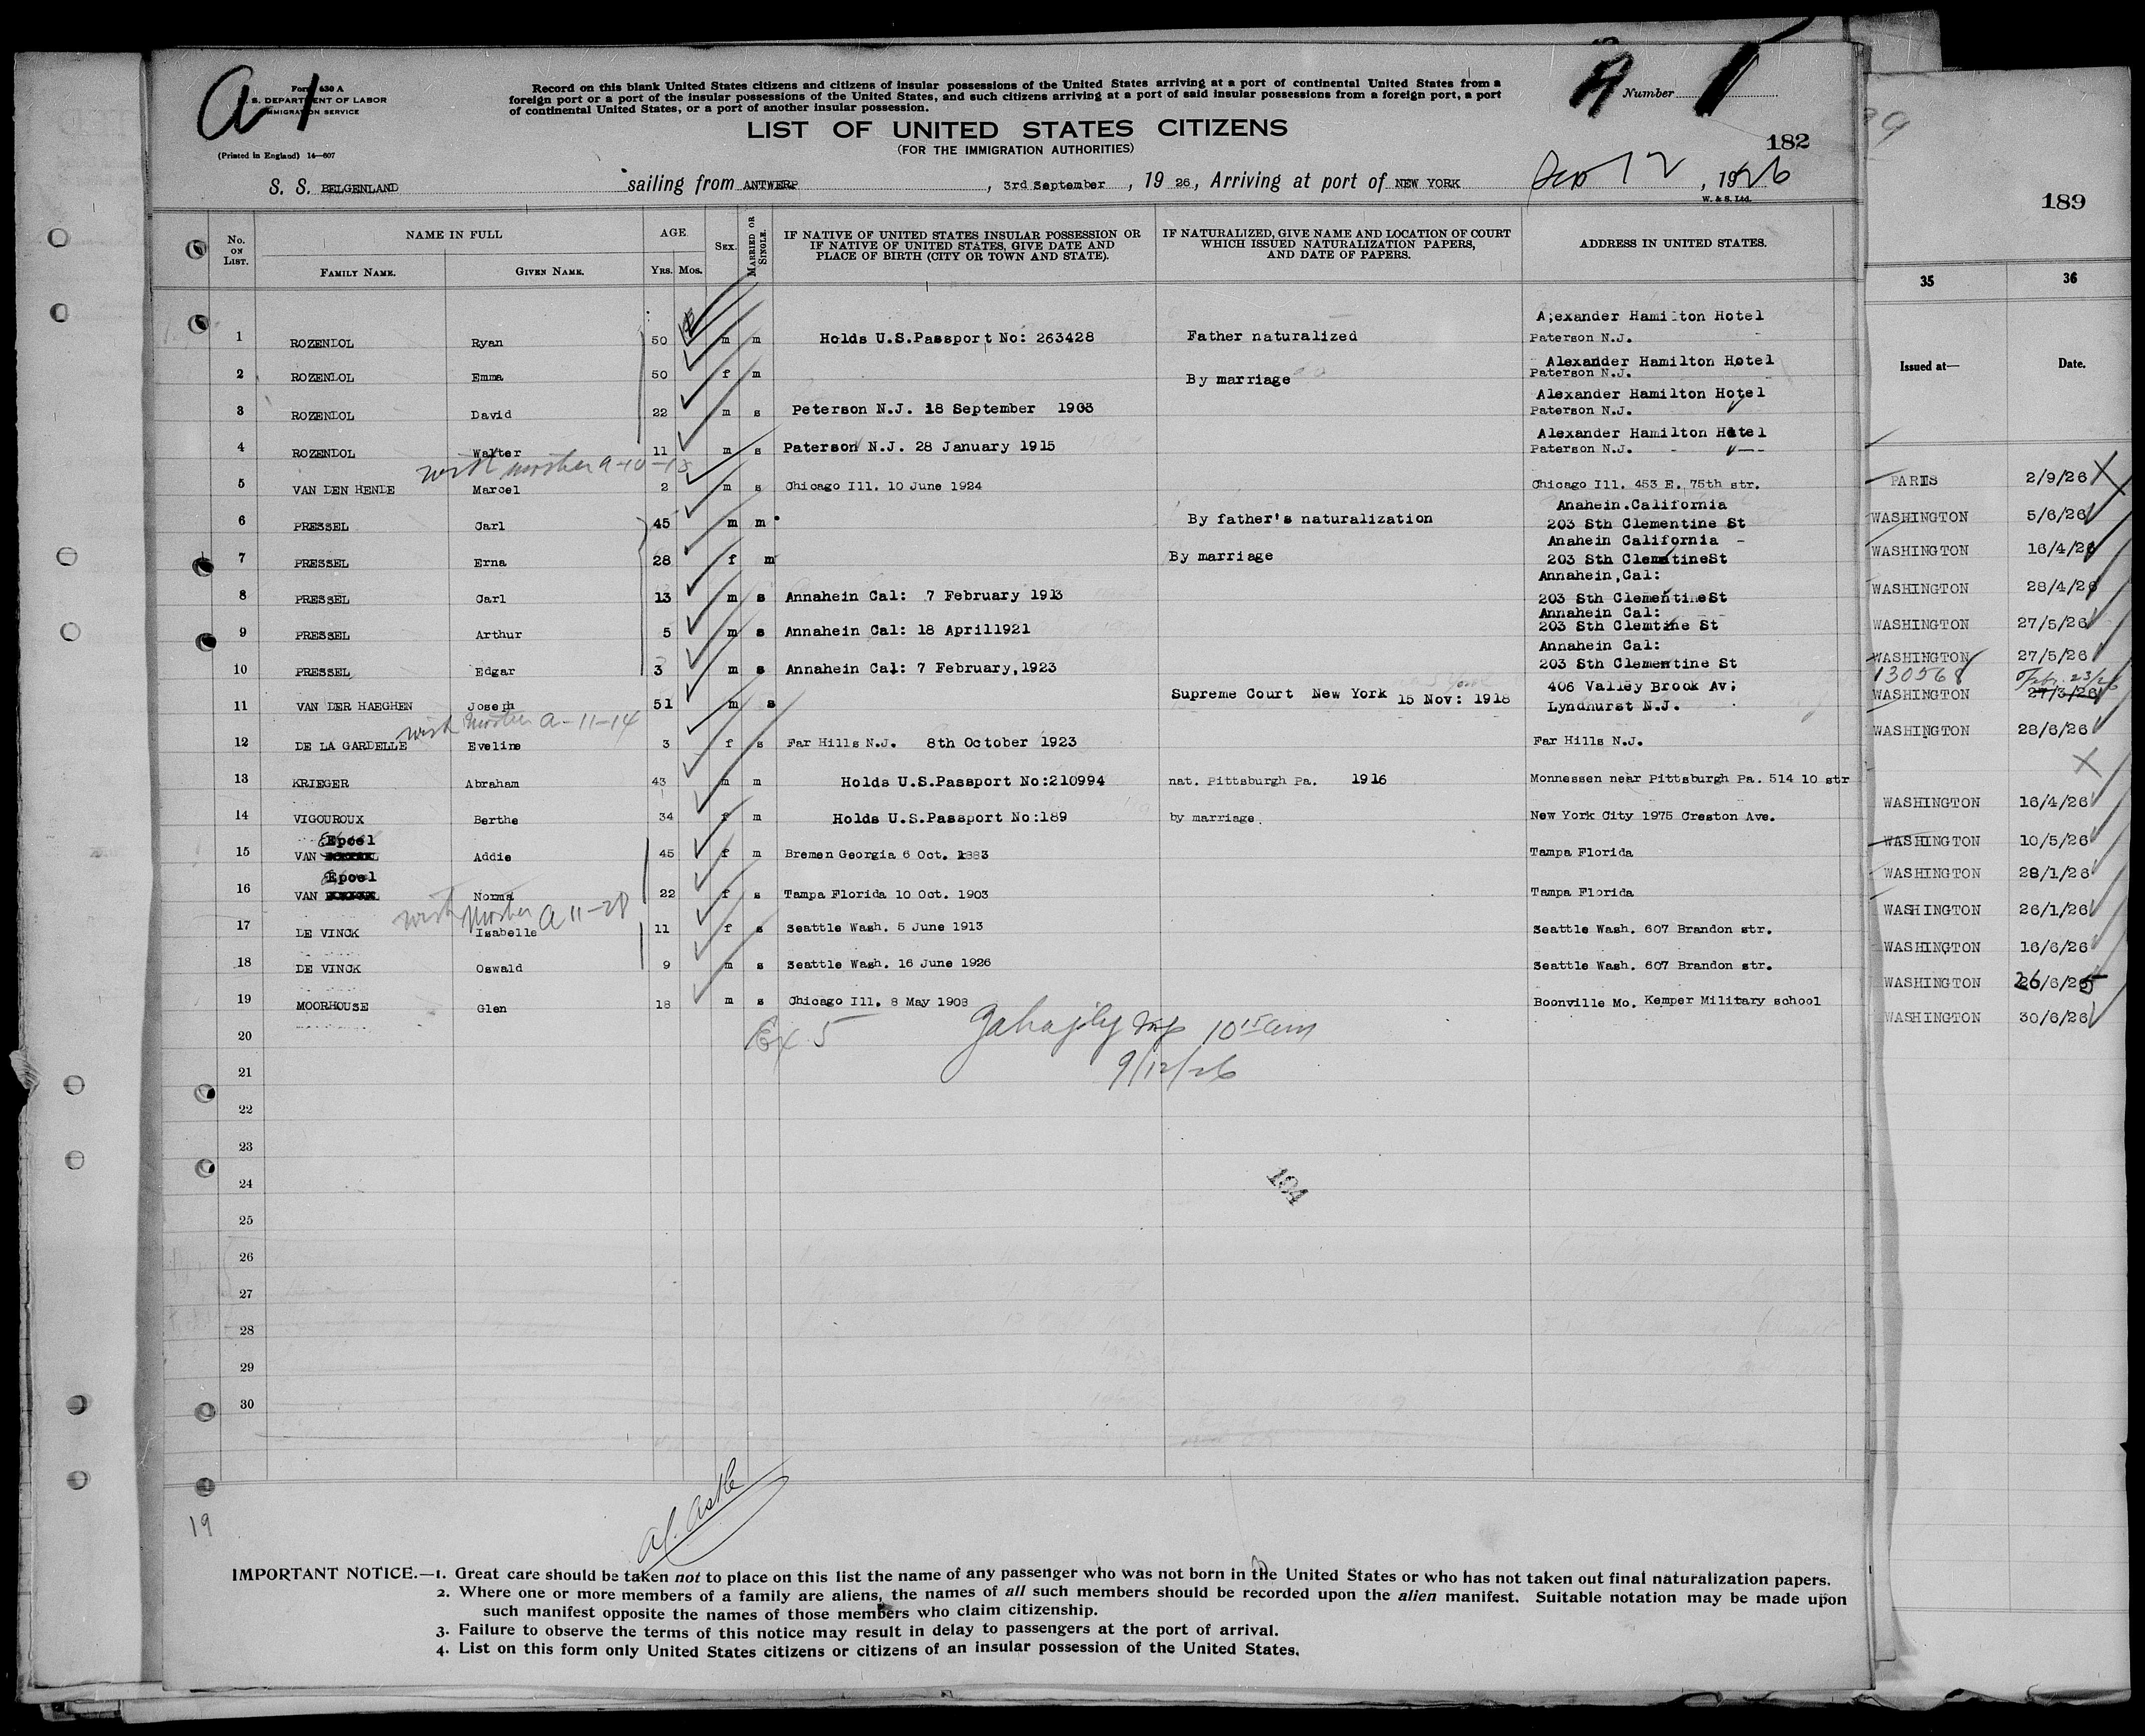 A 1
Form 630 A
U. S. DEPARTMENT OF LABOR
IMMIGRATION SERVICE
(Printed in England) 14—607
Record on this blank United States citizens and citizens of insular possessions of the United States arriving at a port of continental United States from a
foreign port or a port of the insular possessions of the United States, and such citizens arriving at a port of said insular possessions from a foreign port, a port
of continental United States, or a port of another insular possession.
A Number 1
LIST OF UNITED STATES CITIZENS
(FOR THE IMMIGRATION AUTHORITIES)
182
S. S. BELGENLAND sailing from ANTWERP, 3rd September, 19 26, Arriving at port of NEW YORK Sep 12, 1926
W. & S. Ltd.
No. ON LIST. NAME IN FULL FAMILY NAME. GIVEN NAME. AGE YRS. MOS. SEX. MARRIED OR SINGLE. IF NATIVE OF UNITED STATES INSULAR POSSESSION OR IF NATIVE OF UNITED STATES, GIVE DATE AND PLACE OF BIRTH (CITY OR TOWN AND STATE). IF NATURALIZED, GIVE NAME AND LOCATION OF COURT WHICH ISSUED NATURALIZATION PAPERS, AND DATE OF PAPERS. ADDRESS IN UNITED STATES.
A;exander Hamilton Hotel
1 ROZENDOL Ryan 50 m m Holds U.S.Passport No: 263428 Father naturalized Paterson N.J.
Alexander Hamilton Hotel
2 ROZENDOL Emma 50 f m By marriage Paterson N.J.
Alexander Hamilton Hotel
3 ROZENDOL David 22 m s Peterson N.J. 18 September 1903 Paterson N.J.
Alexander Hamilton Hotel
4 ROZENDOL Walter 11 m s Paterson N.J. 28 January 1915 Paterson N.J.
with mother a-10-13
5 VAN DEN HENDE Marcel 2 m s Chicago Ill. 10 June 1924 Chicago Ill. 453 E. 75th str.
Anahein.California
6 PRESSEL Carl 45 m m By father's naturalization 203 Sth Clementine St
Anahein California -
7 PRESSEL Erna 28 f m By marriage 203 Sth ClematineSt
Annahein,Cal:
8 PRESSEL Carl 13 m s Annahein Cal: 7 February 1913 203 Sth ClementineSt
Annahein Cal:
9 PRESSEL Arthur 5 m s Annahein Cal: 18 April1921 203 Sth Clemtine St
Annahein Cal:
10 PRESSEL Edgar 3 m s Annahein Cal: 7 February,1923 203 Sth Clementine St
406 Valley Brook Av;
11 VAN DER HAEGHEN Joseph 51 m s Supreme Court New York 15 Nov: 1918 Lyndhurst N.J.
with mother a-11-14
12 DE LA GARDELLE Eveline 3 f s Far Hills N.J. 8th October 1923 Far Hills N.J.
13 KRIEGER Abraham 43 m m Holds U.S.Passport No:210994 nat. Pittsburgh Pa. 1916 Monnessen near Pittsburgh Pa. 514 10 str
14 VIGOUROUX Berthe 34 f m Holds U.S.Passport No:189 by marriage. New York City 1975 Creston Ave.
Epoel
15 VAN Addie 45 f m Bremen Georgia 6 Oct. 1883 Tampa Florida
Epoel
16 VAN Norma 22 f s Tampa Florida 10 Oct. 1903 Tampa Florida
with Mother a 11-28
17 DE VINCK Isabelle 11 f s Seattle Wash. 5 June 1913 Seattle Wash. 607 Brandon str.
18 DE VINCK Oswald 9 m s Seattle Wash. 16 June 1926 Seattle Wash. 607 Brandon str.
19 MOORHOUSE Glen 18 m s Chicago Ill. 8 May 1908 Boonville Mo. Kemper Military school
20
Ex 5 10 15 am
21
9/12/26
22
23
24
104
25
26
27
28
29
30
19
IMPORTANT NOTICE.—1. Great care should be taken not to place on this list the name of any passenger who was not born in the United States or who has not taken out final naturalization papers.
2. Where one or more members of a family are aliens, the names of all such members should be recorded upon the alien manifest. Suitable notation may be made upon
such manifest opposite the names of those members who claim citizenship.
3. Failure to observe the terms of this notice may result in delay to passengers at the port of arrival.
4. List on this form only United States citizens or citizens of an insular possession of the United States.
189
35 36
Issued at— Date.
PARIS 2/9/26
WASHINGTON 5/6/26
WASHINGTON 16/4/26
WASHINGTON 28/4/26
WASHINGTON 27/5/26
WASHINGTON 27/5/26
130568 23/26
WASHINGTON 27/3/26
WASHINGTON 28/6/26
WASHINGTON 16/4/26
WASHINGTON 10/5/26
WASHINGTON 28/1/26
WASHINGTON 26/1/26
WASHINGTON 16/6/26
WASHINGTON 26/6/25
WASHINGTON 30/6/26